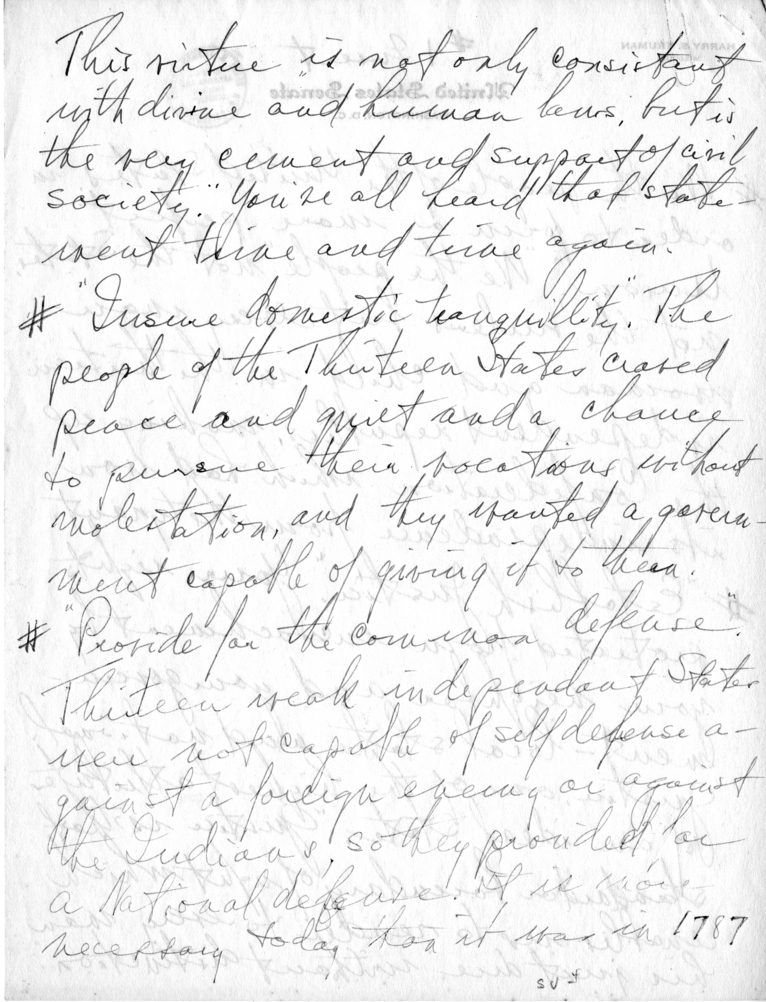 This virtue "is not only consistant
with divine and human laws, but is
the very cement and support of civil
society." You've all heard that state-
ment time and time again.
# "Insure domestic tranquillity". The
people of the Thirteen States craved
peace and quiet and a chance
to pursue their vocations without
molestation, and they wanted a govern-
ment capable of giving it to them.
# "Provide for the common defense".
Thirteen weak independant States
were not capable of self defense a-
gainst a foreign enemy or against
the Indians, so they provided for
a National defense. It is more
necessary today than it was in 1787